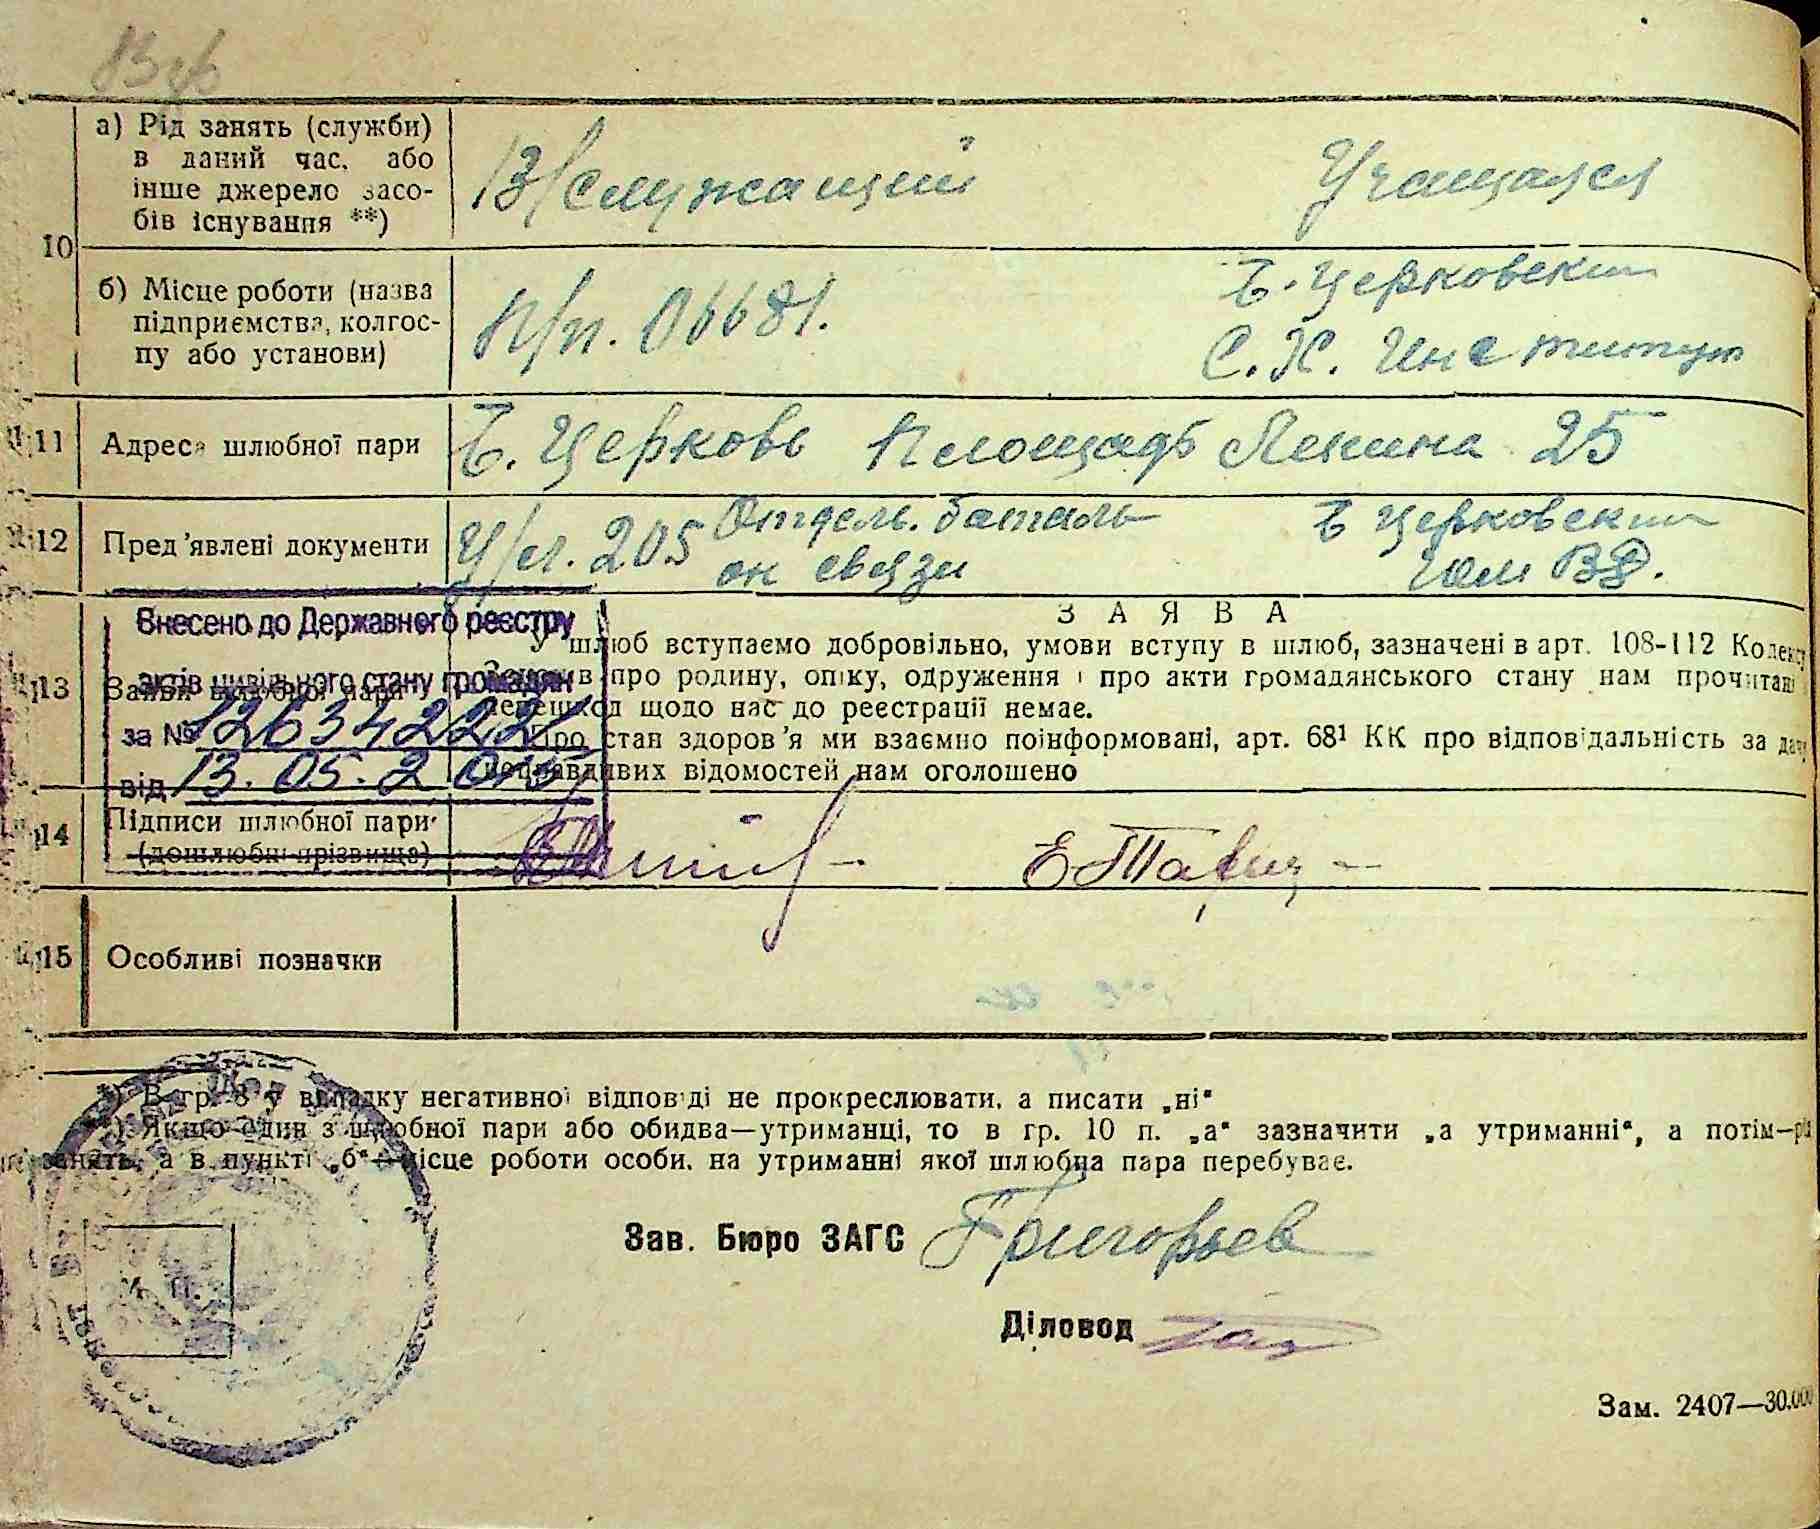 а) Рід занять (служби)
в даний час, або
інше джерело засо-
бів існування **)
В/служащий
Учащаяся
10
б) Місце роботи (назва
підприємства, колгос-
пу або установи)
П/п. 06681.
Б. Церковский
С. Х. Институт
11
Адреса шлюбної пари
Б. Церковь Площадь Ленина 25
12
Пред'явлені документи
У/л. 205 Отдель. баталь
он связи
Б Церковским
ВД.
Внесено до Державного реєстру
актів цивільного стану громадян
за № 1263422
від 13. 05. 2015
13
Заяви шлюбної пари
ЗАЯВА
У шлюб вступаємо добровільно, умови вступу в шлюб, зазначені в арт. 108-112 Кодексу
про родину, опіку, одруження і про акти громадянського стану нам прочитані
щодо нас до реєстрації немає.
Про стан здоров'я ми взаємно поінформовані, арт. 68¹ КК про відповідальність за
неправдивих відомостей нам оголошено
14
Підписи шлюбної пари
(дошлюбні прізвища)
15
Особливі позначки
В гр. 8 у випадку негативної відповіді не прокреслювати, а писати „ні“
Якщо один з шлюбної пари або обидва—утриманці, то в гр. 10 п. „а“ зазначити „а утриманні“, а потім—рід
занять, а в пункті „б“—місце роботи особи, на утриманні якої шлюбна пара перебуває.
Зав. Бюро ЗАГС Григорьев
Діловод
М. П.
Зам. 2407—30.000